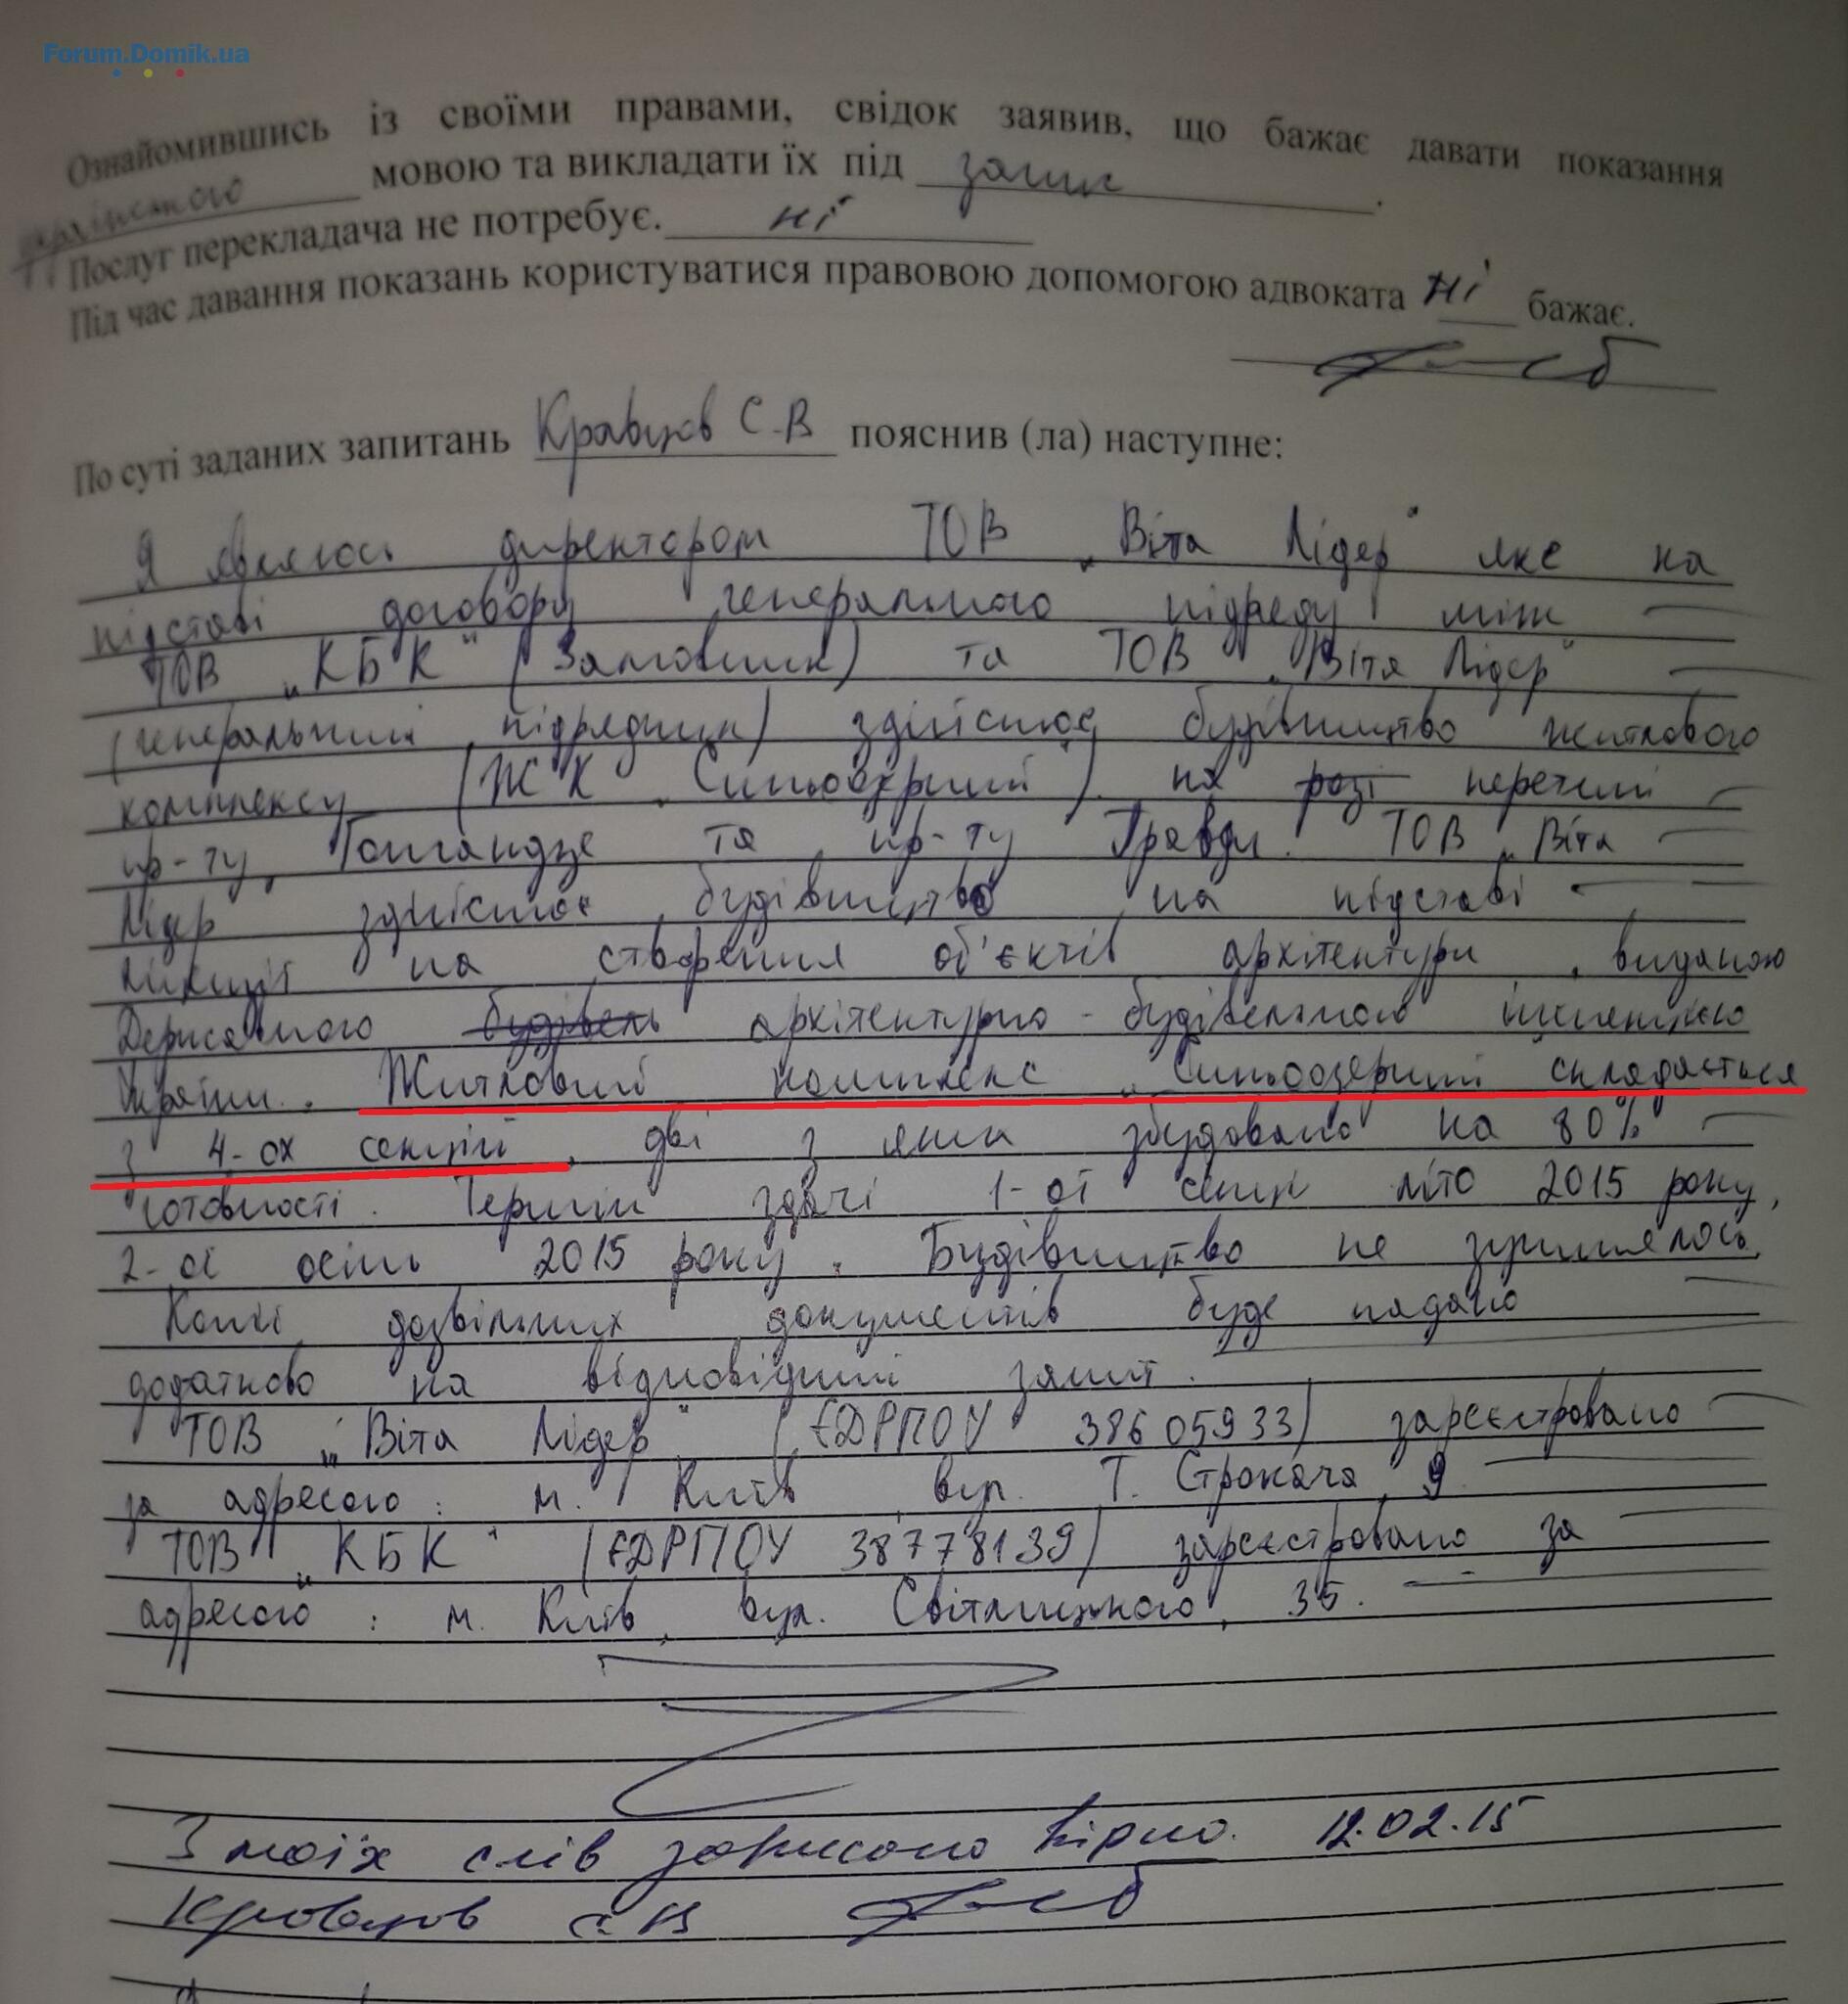 Forum.Domik.ua
Ознайомившись із своїми правами, свідок заявив, що бажає давати показання
українською мовою та викладати їх під запис.
Послуг перекладача не потребує. ні
Під час давання показань користуватися правовою допомогою адвоката ні бажає.
По суті заданих запитань Кравцов С.В пояснив (ла) наступне:
Я являюсь директором ТОВ „Віта Лідер" яке на
підставі договору генерального підряду між
ТОВ „КБК" (Замовник) та ТОВ „Віта Лідер"
(генеральний підрядник) здійснює будівництво житлового
комплексу (ЖК „Синьоозерний") на розі перетині
пр-ту Гонгандзе та пр-ту Правди. ТОВ „Віта
Лідер" здійснює будівництво на підставі
ліцензії на створення об'єктів архітектури, виданою
Державною будівель архітектурно-будівельною інспекцією
України. Житловий комплекс „Синьоозерний складається
з 4-ох секцій, дві з яких збудовано на 80%
готовності. Термін здачі 1-ої секції літо 2015 року,
2-ої осінь 2015 року. Будівництво не зупинялось.
Копії дозвільних документів буде надано
додатково на відповідний запит.
ТОВ „Віта Лідер" (ЄДРПОУ 38605933) зареєстровано
за адресою: м. Київ вул. Т. Строкача, 9.
ТОВ „КБК" (ЄДРПОУ 38778139) зареєстровано за
адресою: м. Київ, вул. Світлицького, 35.
З моїх слів записано вірно. 12.02.15
Кравцов С.В